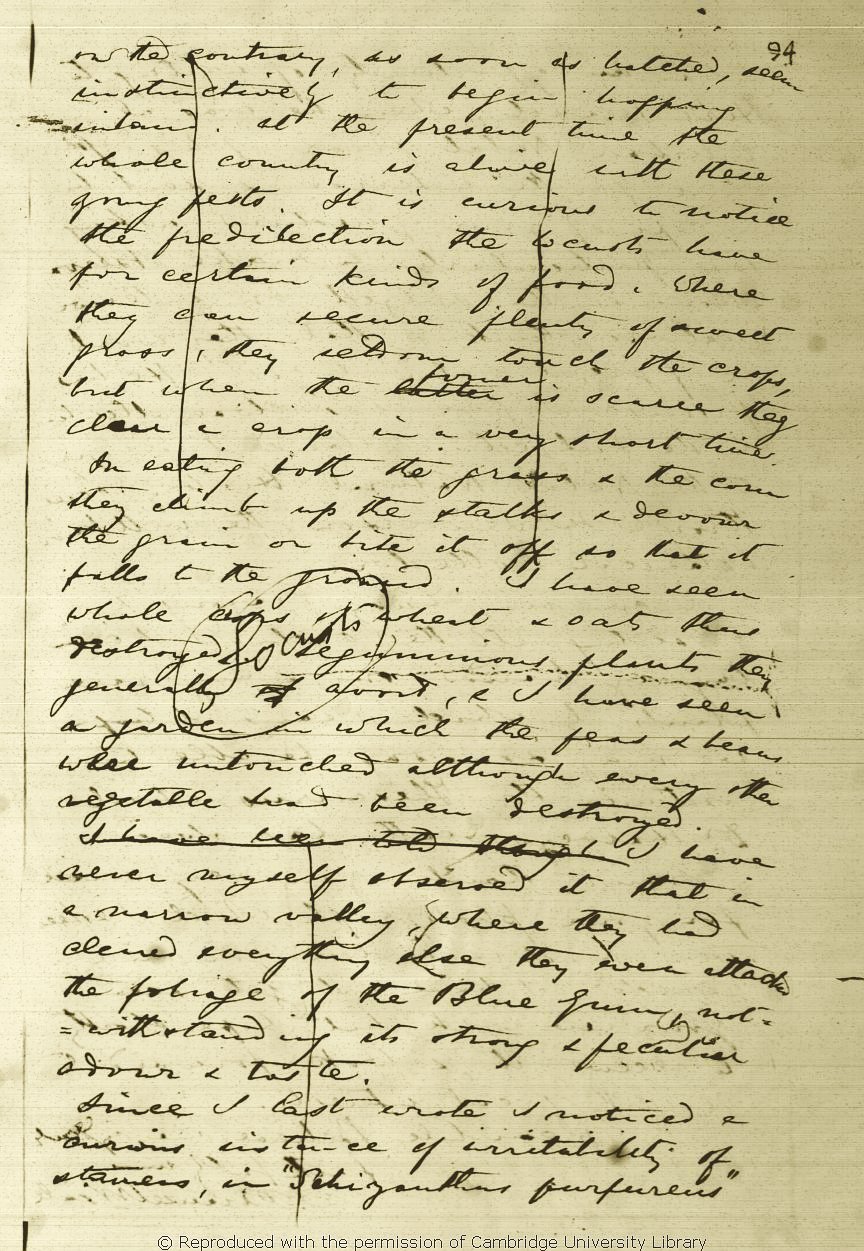 94
on the contrary, as soon as hatched, seem
instinctively to begin hopping
inland. At the present time the
whole country is alive with these
young pests. It is curious to notice
the predilection the locusts have
for certain kinds of food. Where
they can secure plenty of sweet
grass, they seldom touch the crops,
former
but when the latter is scarce they
clear a crop in a very short time.
In eating both the grass & the corn
they climb up the stalks & devour
the grain or bite it off so that it
falls to the ground. I have seen
whole crops of wheat & oats thus
Locusts
destroyed. Leguminous plants they
generally avoid, & I have seen
a garden in which the peas & beans
were untouched although every other
vegetable had been destroyed.
I have been told though I have
never myself observed it that in
a narrow valley, where they had
cleared everything else they even attacked
the foliage of the Blue Gum, not-
=withstanding its strong & peculiar
odour & taste.
Since I last wrote I noticed a
curious instance of irritability of
stamens, in "Schizanthus purpureus"
© Reproduced with the permission of Cambridge University Library